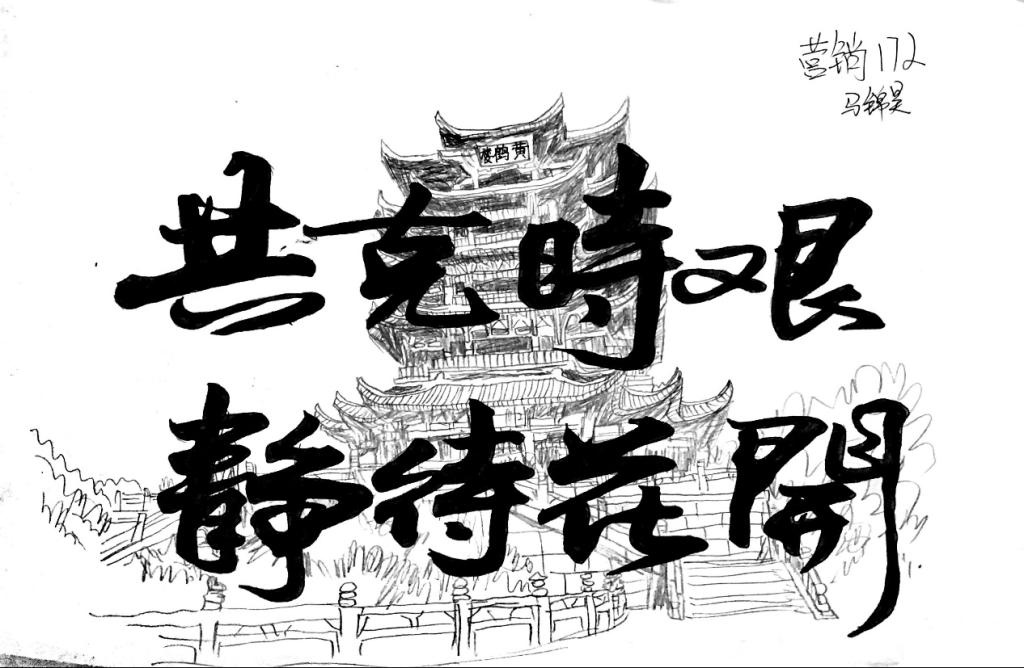 营销172
马锦昊
黄鹤楼
共克時艰
靜待花開